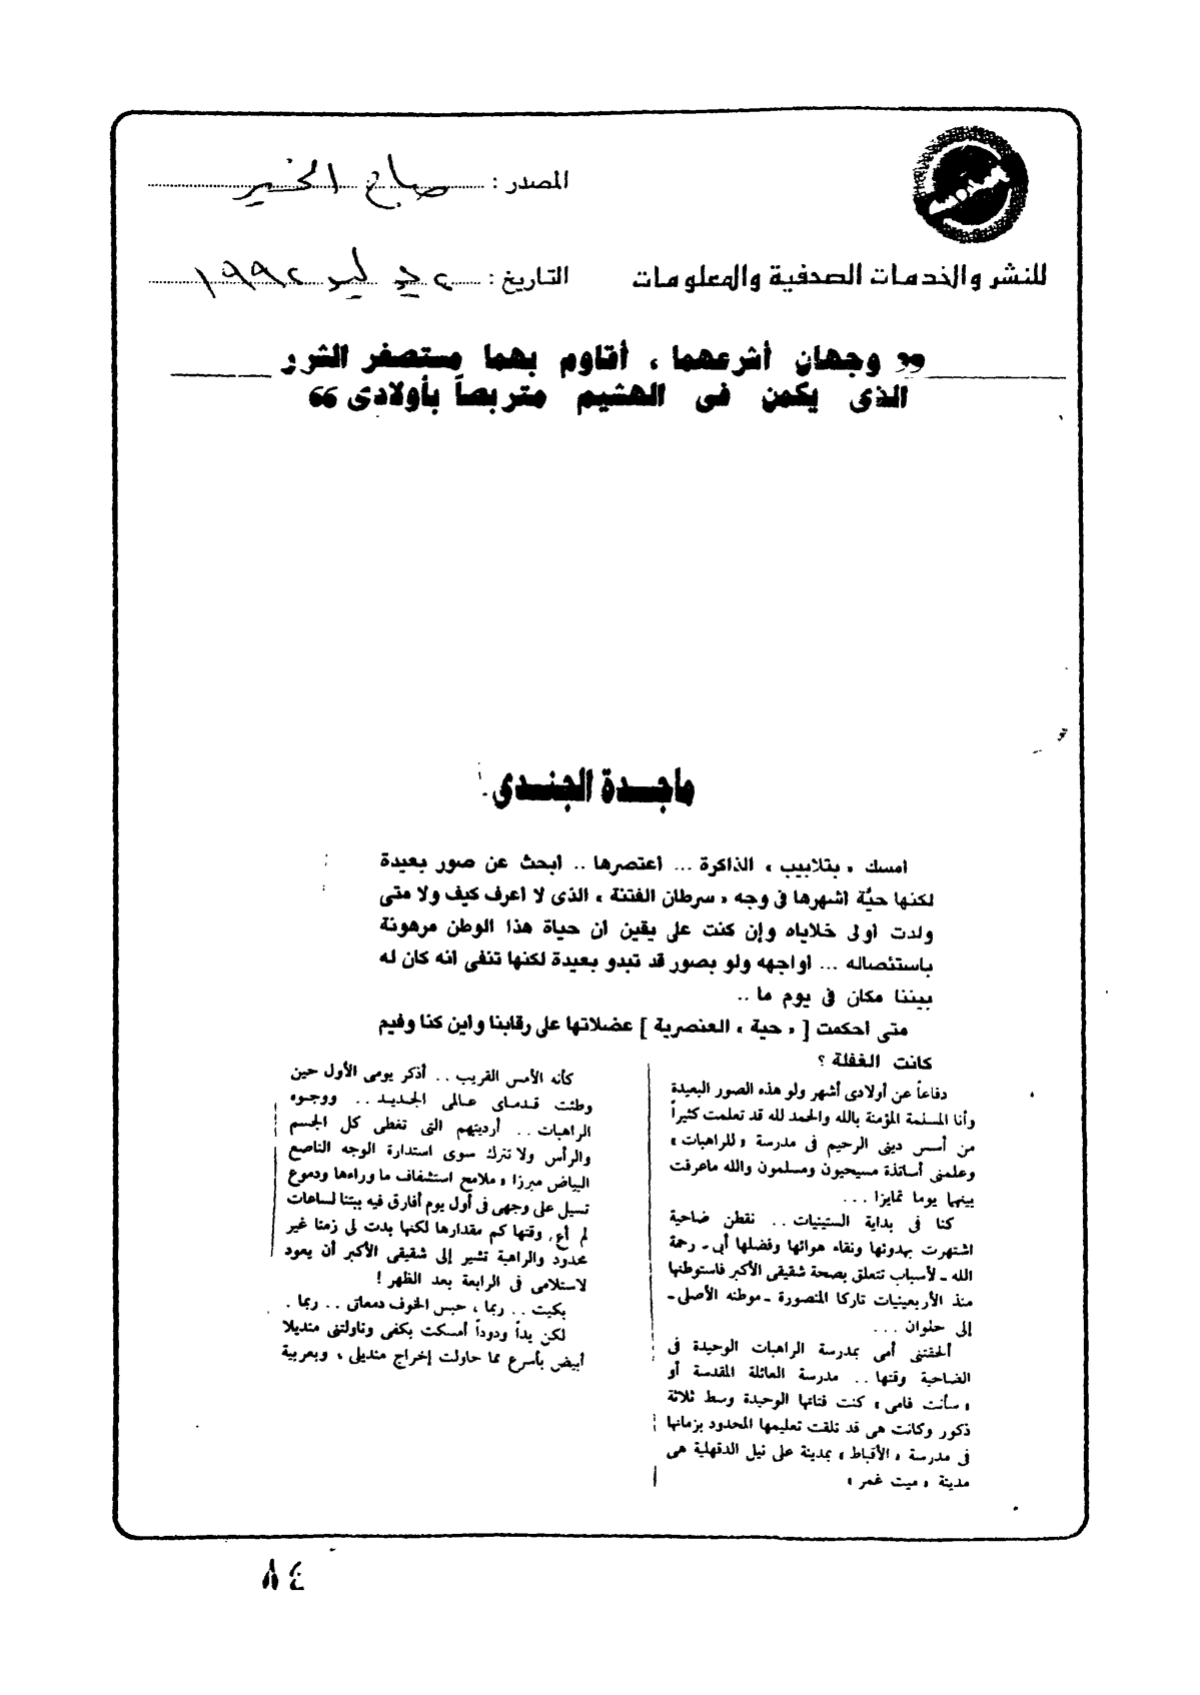 المصدر : صباح الخير
للنشر والخدمات الصحفية والمعلومات
التاريخ : ٢ يوليو ١٩٩٢
" وجهان أشرعهما ، أقاوم بهما مستصغر الشرر
الذى يكمن فى الهشيم متربصاً بأولادى "
ماجـدة الجنـدى
امسك « بتلابيب » الذاكرة ... اعتصرها .. ابحث عن صور بعيدة
لكنها حيَّة اشهرها فى وجه « سرطان الفتنة » الذى لا اعرف كيف ولا متى
ولدت أولى خلاياه وإن كنت على يقين ان حياة هذا الوطن مرهونة
باستئصاله ... اواجهه ولو بصور قد تبدو بعيدة لكنها تنفى انه كان له
بيننا مكان فى يوم ما ..
متى احكمت [ « حية » العنصرية ] عضلاتها على رقابنا واين كنا وفيم
كانت الغفلة ؟
دفاعاً عن أولادى أشهر ولو هذه الصور البعيدة
وأنا المسلمة المؤمنة بالله والحمد لله قد تعلمت كثيراً
من أسس دينى الرحيم فى مدرسة « للراهبات »
وعلمنى أساتذة مسيحيون ومسلمون والله ماعرفت
بينهما يوما تمايزا ...
كنا فى بداية الستينيات .. نقطن ضاحية
اشتهرت بهدوئها ونقاء هوائها وفضلها أبى ـ رحمة
الله ـ لأسباب تتعلق بصحة شقيقى الأكبر فاستوطنها
منذ الأربعينيات تاركا المنصورة ـ موطنه الأصلى ـ
إلى حلوان ...
ألحقتنى أمى بمدرسة الراهبات الوحيدة فى
الضاحية وقتها .. مدرسة العائلة المقدسة أو
« سأنت فامى » كنت فتاتها الوحيدة وسط ثلاثة
ذكور وكانت هى قد تلقت تعليمها المحدود بزمانها
فى مدرسة « الأقباط » بمدينة على نيل الدقهلية هى
مدينة « ميت غمر »
كأنه الأمس القريب .. أذكر يومى الأول حين
وطئت قدماى عالمى الجديد .. ووجوه
الراهبات .. أرديتهم التى تغطى كل الجسم
والرأس ولا تترك سوى استدارة الوجه الناصع
البياض مبرزا « ملامح استشفاف ما وراءها ودموع
تسيل على وجهى فى أول يوم أفارق فيه بيتنا لساعات
لم أع وقتها كم مقدارها لكنها بدت لى زمنا غير
محدود والراهبة تشير إلى شقيقى الأكبر أن يعود
لاستلامى فى الرابعة بعد الظهر !
بكيت .. ربما ، حبس الخوف دمعاتى .. ربما .
لكن يداً ودوداً أمسكت بكفى وناولتنى منديلا
أبيض بأسرع مما حاولت إخراج منديلى ، وبعربية
٨٤